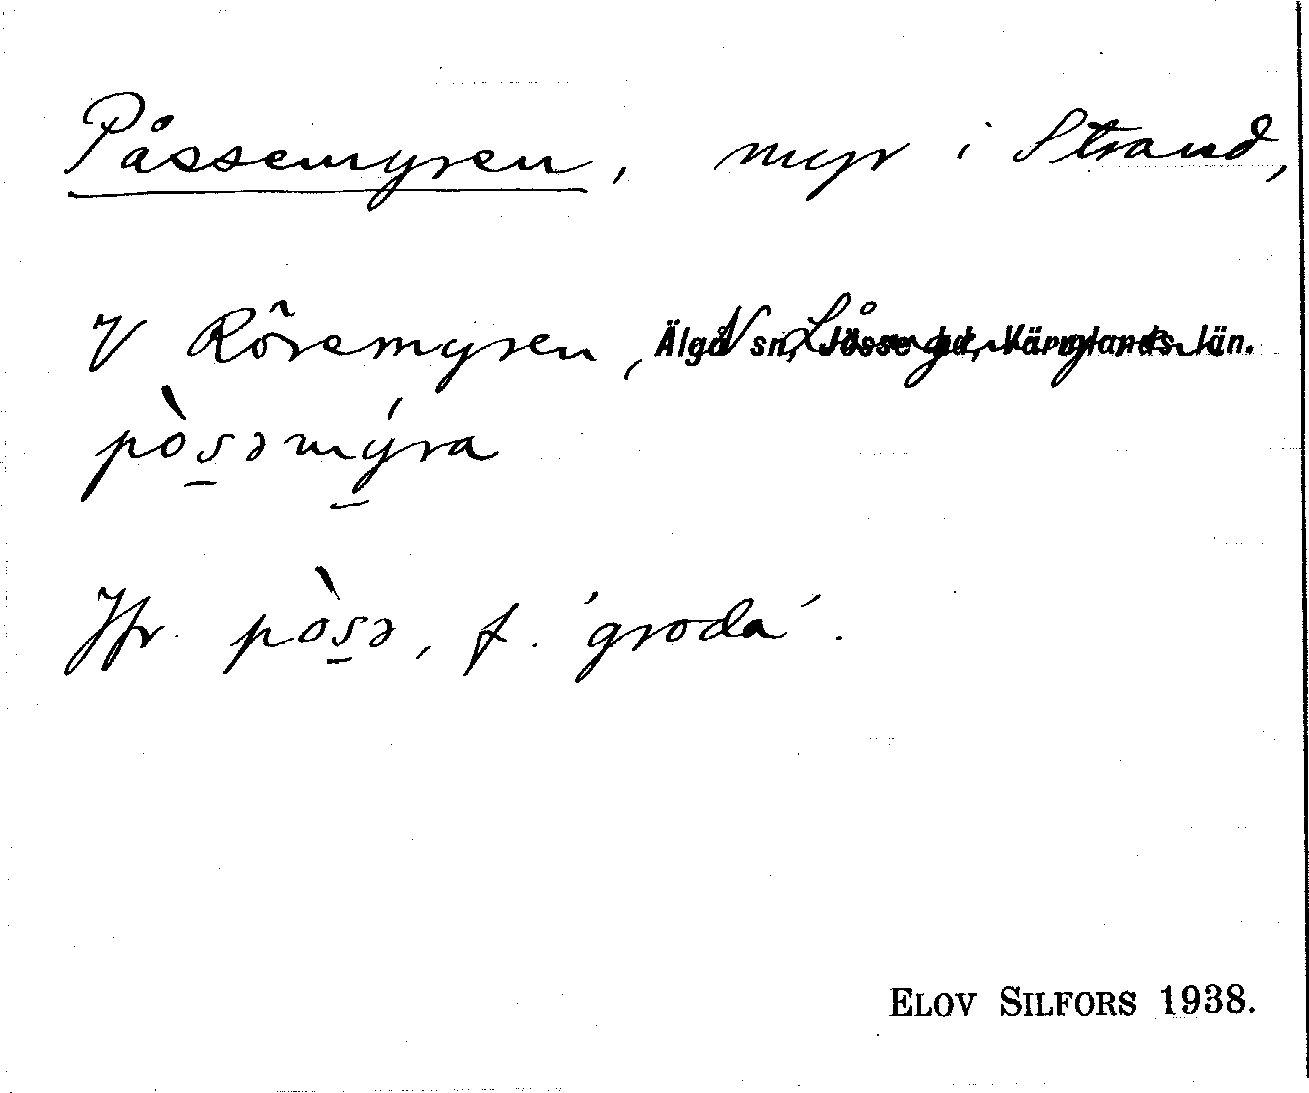 Påssemyren, myr i Strand,
V Rôremyren, N Långmyren
Älgå sn, Jösse hd, Värmlands län.
pòsəmýra
Jfr pòsə, f. 'groda'.
ELOV SILFORS 1938.